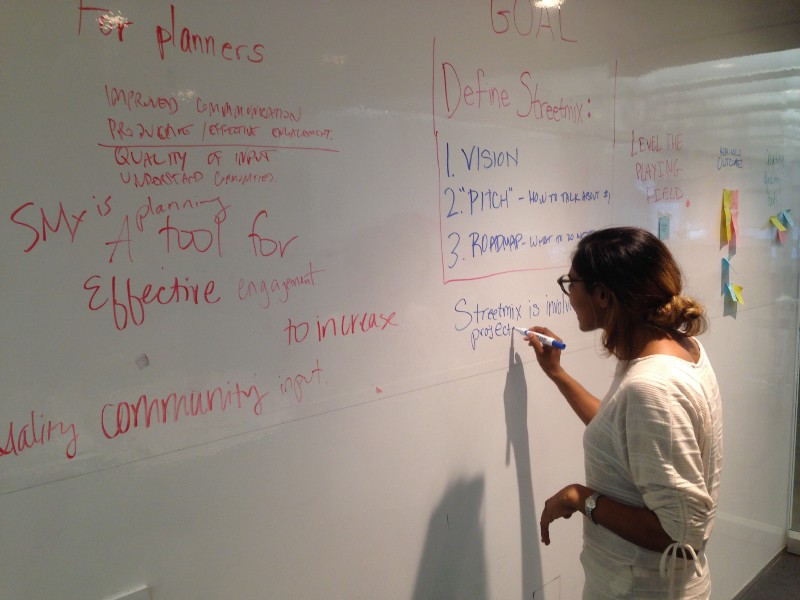 For planners
IMPROVED COMMUNICATION
PRODUCTIVE / EFFECTIVE ENGAGEMENT.
QUALITY OF INPUT
UNDERSTAND COMMUNITIES.
SMx is planning
A tool for
Effective engagement
to increase
community input.
GOAL
Define Streetmix:
1. VISION
2. "PITCH" - HOW TO TALK ABOUT
3. ROADMAP - WHAT TO DO
Streetmix is
project
LEVEL THE
PLAYING
FIELD.
OUTCOME